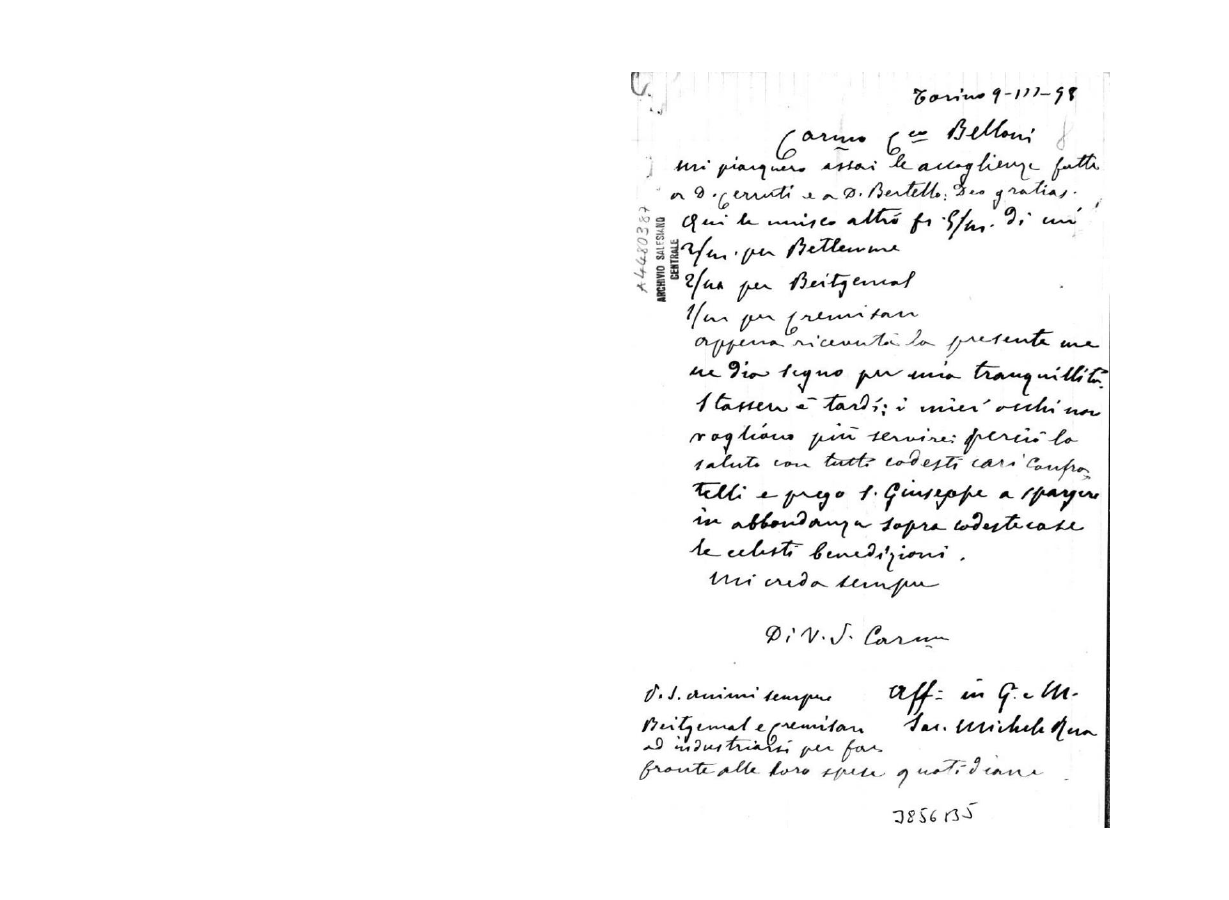 Torino 9-III-98
Carmo Cco Belloni
mi piacquero assai le accoglienze fatte
a D. Cerruti e a D. Bertello: Deo gratias.
Qui le unisco altri fr. 5/m. di cui
2/m. per Betlemme
2/m per Beitgemal
1/m per Cremisan
appena ricevuta la presente me
ne dia segno per mia tranquillità.
Stassera è tardi; i miei occhi non
vogliono più servire: perciò la
saluto con tutti codesti cari Confra-
telli e prego S. Giuseppe a spargere
in abbondanza sopra codeste case
le celesti benedizioni.
Mi creda sempre
Di V. S. Carma
Aff: in G. e M.
Sac. Michele Rua
P.S. animi sempre
Beitgemal e Cremisan
ad industriarsi per far
fronte alle loro spese quotidiane
A4480387
ARCHIVIO SALESIANO
CENTRALE
3856 B5